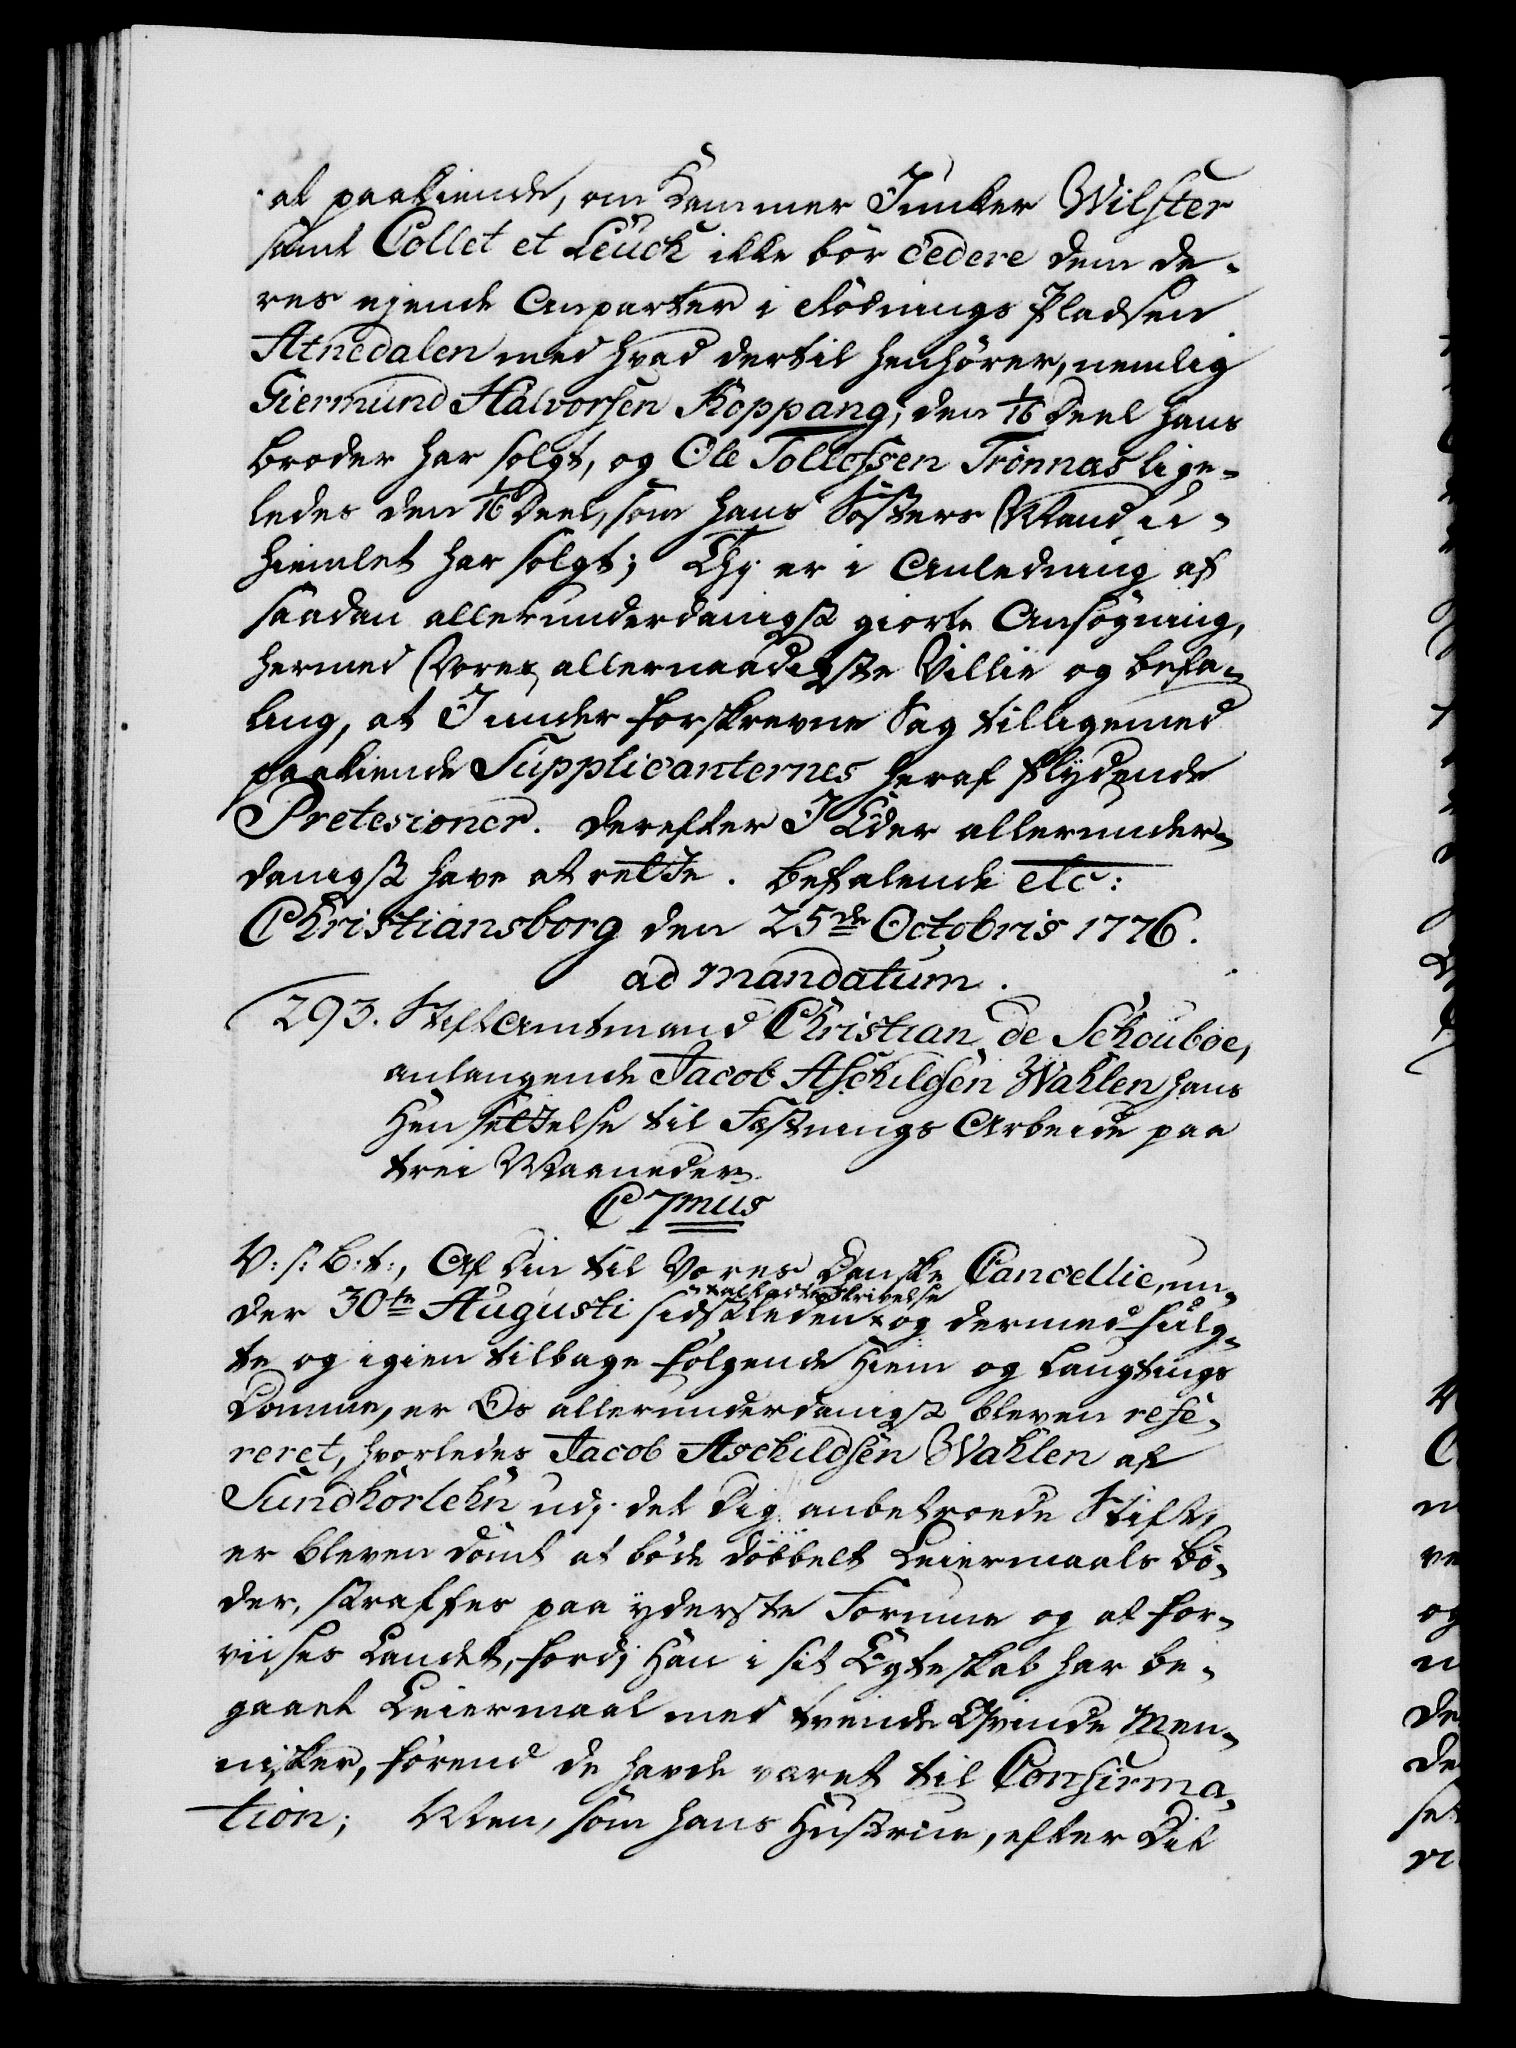 at paakiende, om Kammer Junker Wilster
samt Collet et Leuch ikke bör cedere dem de-
res ejende Anparter i Rödnings Pladsen
Atnedalen med hvad dertil henhörer, nemlig
Giermund Halvorsen Koppang, den 1/16 Deel hans
broder har solgt, og Ole Tollofssen Trönnæs lige-
ledes den 1/16 Deel, som hans Sösters Mand u-
hiemlet har solgt; Thj er i Anledning af
saadan allerunderdanigst giorte Ansögning,
hermed Vores allernaadigste Villie og befa-
ling, at I under forskrevne Sag tilligemed
paakiende Supplicanternes heraf flydende
Pretesioner. derefter I Eder allerunder-
danigst have at rette. befalende etc:
Christiansborg den 25de Octobris 1776.
ad mandatum.
293. Stiftamtmand Christian de Schouboe,
anlangende Jacob Aschildsen Wahlen hans
Hensettelse til Fæstnings Arbeide paa
trei Maaneder.
C 7mus
V: s: B: t:, Af Din til Vores Danske Cancellie, un-
der 30te Augusti sidstleden × og dermed fulg-
× aflagde Skrivelse
te og igien tilbage fölgende Hiem og Laugtings
Domme, er Os allerunderdanigst bleven refe-
reret, hvorledes Jacob Aschildsen Wahlen af
Sundhorlehn udj det Dig anbetroede Stift,
er bleven dömt at böde döbbelt Leiermaals Bö-
der, straffes paa yderste Formue og at for-
viises Landet, fordj Han i sit Egteskab har be-
gaaet Leiermaal med tvende Qvinde Men-
nisker, förend de havde været til Confirma-
tion; Men, som hans Hustrue, efter Dit